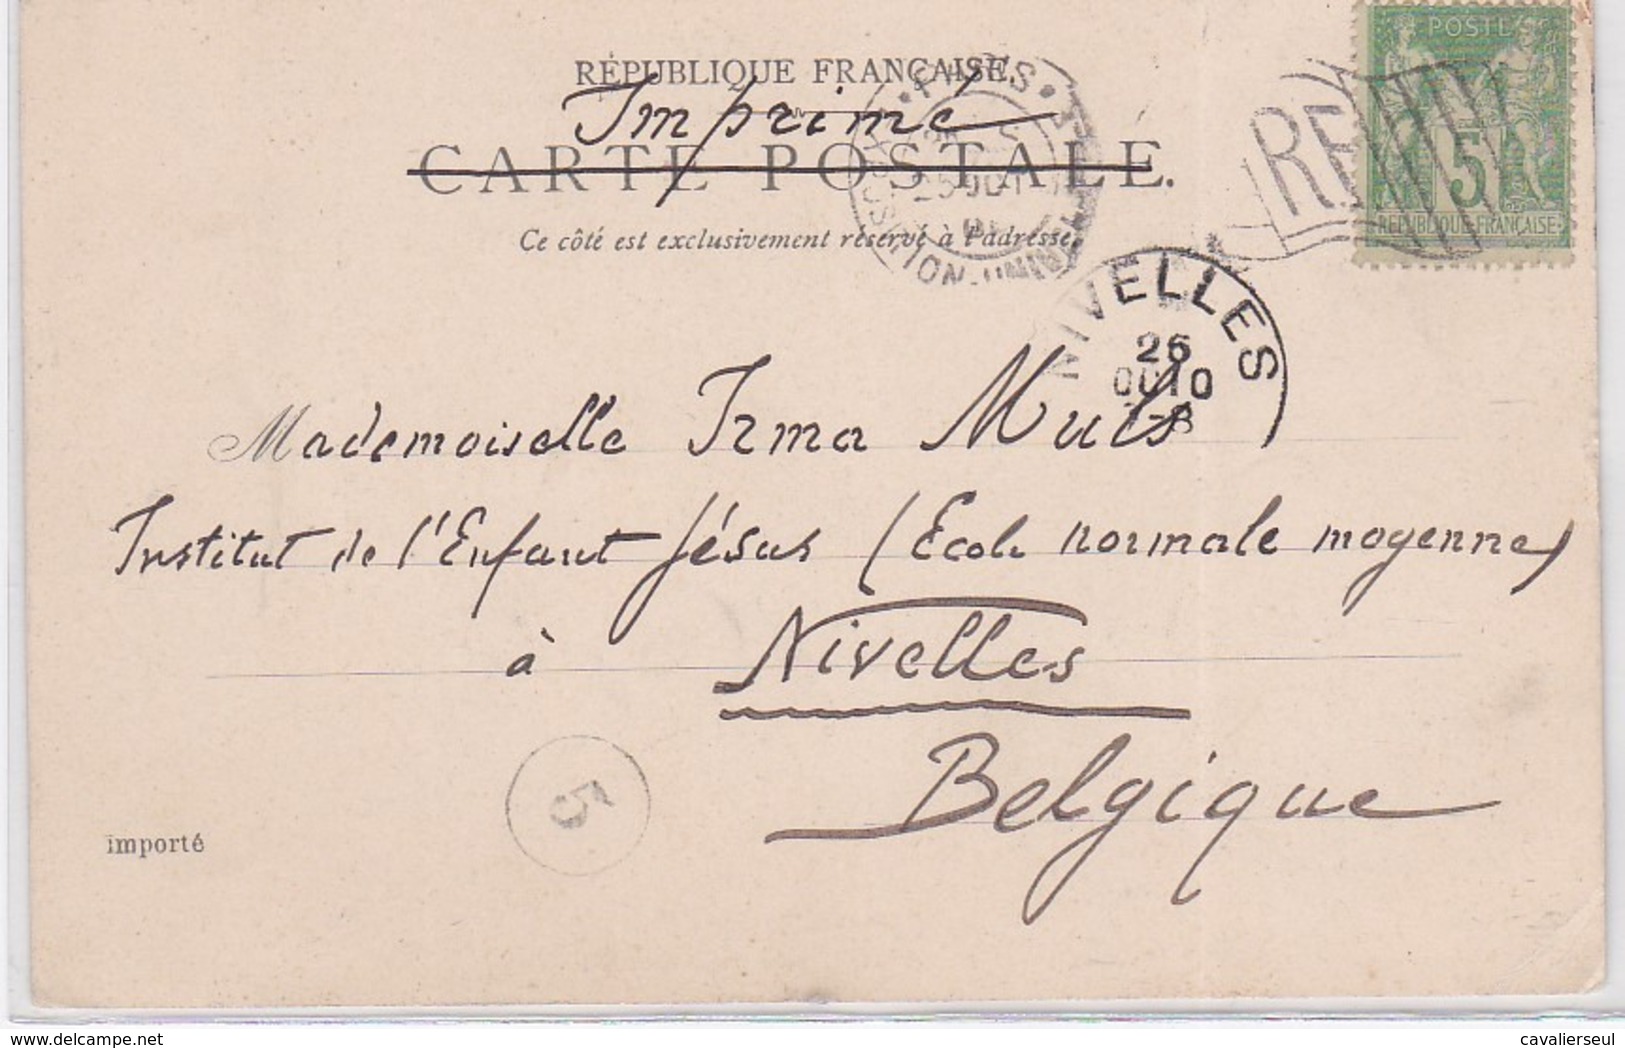 RÉPUBLIQUE FRANÇAISE.
Imprimé
CARTE POSTALE.
Ce côté est exclusivement réservé à l'adresse.
POSTE
5
REPUBLIQUE FRANÇAISE
RF
PARIS
EXPOSITION
NIVELLES
26
OCT
Mademoiselle Irma Muls
Institut de l'Enfant Jésus (Ecole normale moyenne)
à Nivelles
Belgique
5
importé
delcampe.net
cavalierseul